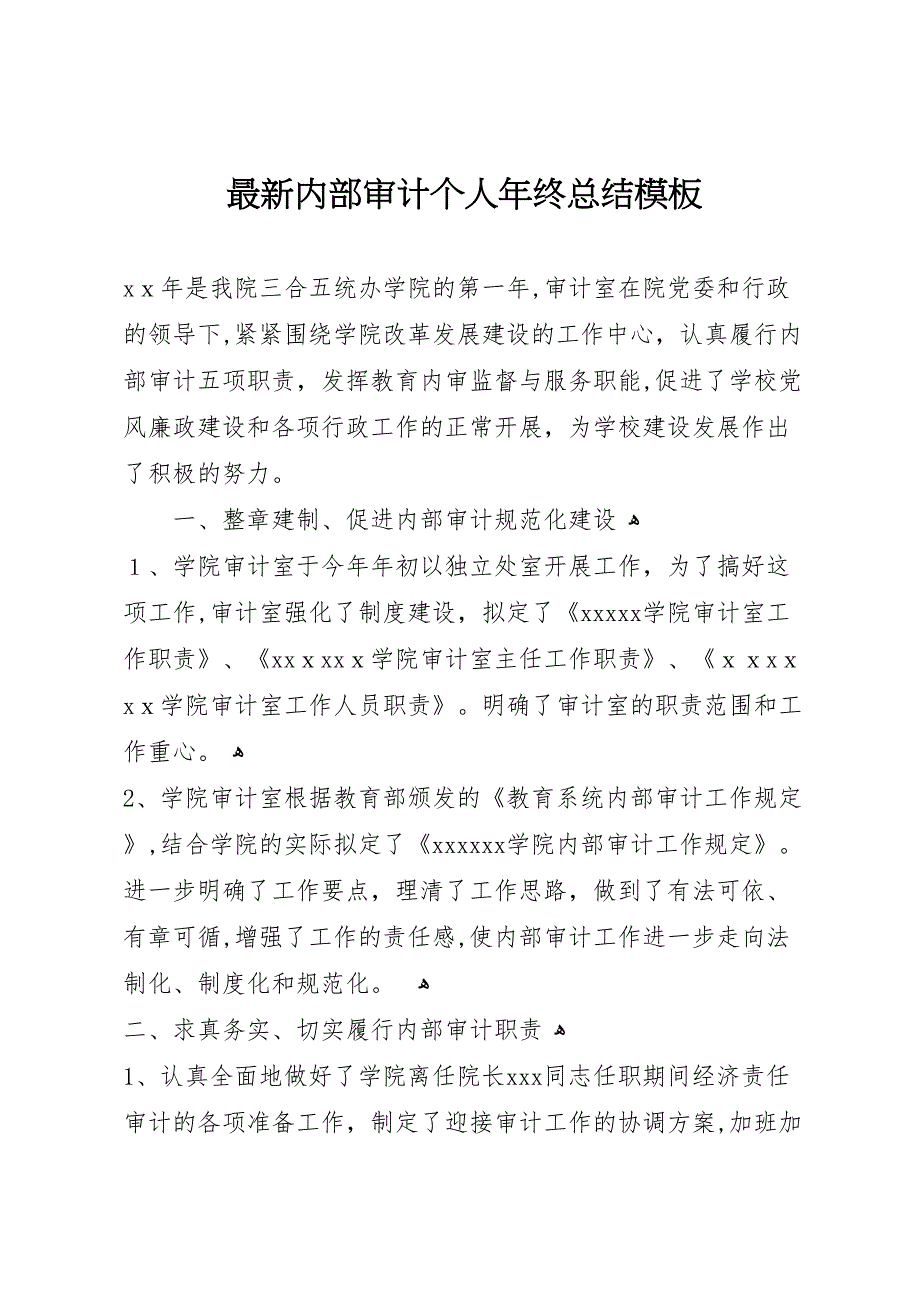 最新内部审计个人年终总结模板
xｘ年是我院三合五统办学院的第一年,审计室在院党委和行政
的领导下,紧紧围绕学院改革发展建设的工作中心，认真履行内
部审计五项职责，发挥教育内审监督与服务职能,促进了学校党
风廉政建设和各项行政工作的正常开展，为学校建设发展作出
了积极的努力。
一、整章建制、促进内部审计规范化建设 ﻫ
１、学院审计室于今年年初以独立处室开展工作，为了搞好这
项工作,审计室强化了制度建设，拟定了《xxxxx学院审计室工
作职责》、《xxｘxxｘ学院审计室主任工作职责》、《ｘｘxｘ
xｘ学院审计室工作人员职责》。明确了审计室的职责范围和工
作重心。 ﻫ
2、学院审计室根据教育部颁发的《教育系统内部审计工作规定
》,结合学院的实际拟定了《xxxxxx学院内部审计工作规定》。
进一步明确了工作要点，理清了工作思路，做到了有法可依、
有章可循,增强了工作的责任感,使内部审计工作进一步走向法
制化、制度化和规范化。 ﻫ
二、求真务实、切实履行内部审计职责 ﻫ
1、认真全面地做好了学院离任院长xxx同志任职期间经济责任
审计的各项准备工作，制定了迎接审计工作的协调方案,加班加